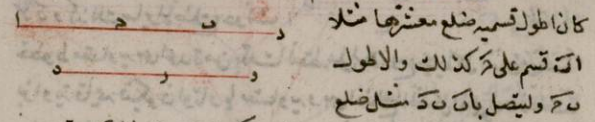 كان اطول قسميه ضلع معشرها مثلا
اد قسم على حـ كذلك والاطول
وليتصل باب ب د مثل ضلع
ا ح ب د
ه ر و